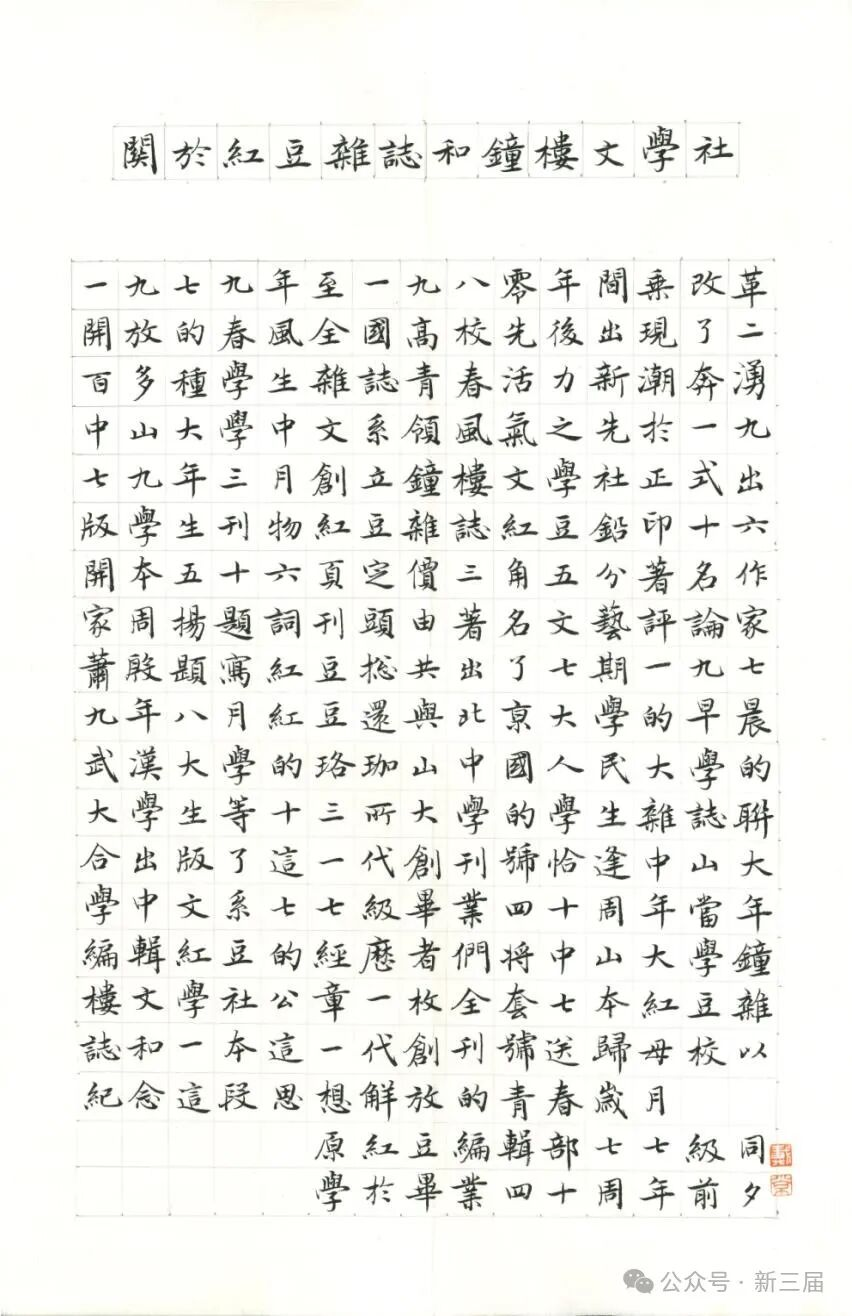 關於紅豆雜誌和鐘樓文學社
一九七九年至一九八零年間乘改革
開放的春風全國高校先後出現了二
百多種學生雜誌青春活力新潮奔湧
中山大學中文系領風氣之先於一九
七九年三月創立鐘樓文學社正式出
版學生刊物紅豆雜誌紅豆鉛印十六
開本五十六頁定價三角五分著名作
家周揚題詞刊頭由著名文藝評論家
蕭殷題寫紅豆捴共出了七期一九七
九年八月紅豆還與北京大學的早晨
武漢大學的珞珈山中國人民大學的
大學生等十三所大學的學生雜誌聯
合出版了這一代創刊號恰逢中山大
學中文系七七級畢業四十周年當年
編輯紅豆的經歷者們將中山大學鐘
樓文學社公章一枚全套七本紅豆雜
誌和一本這一代創刊號送歸母校以
紀念這段思想解放的青春歲月
原紅豆編輯部七七級同
學於畢業四十周年前夕
公众号·新三届